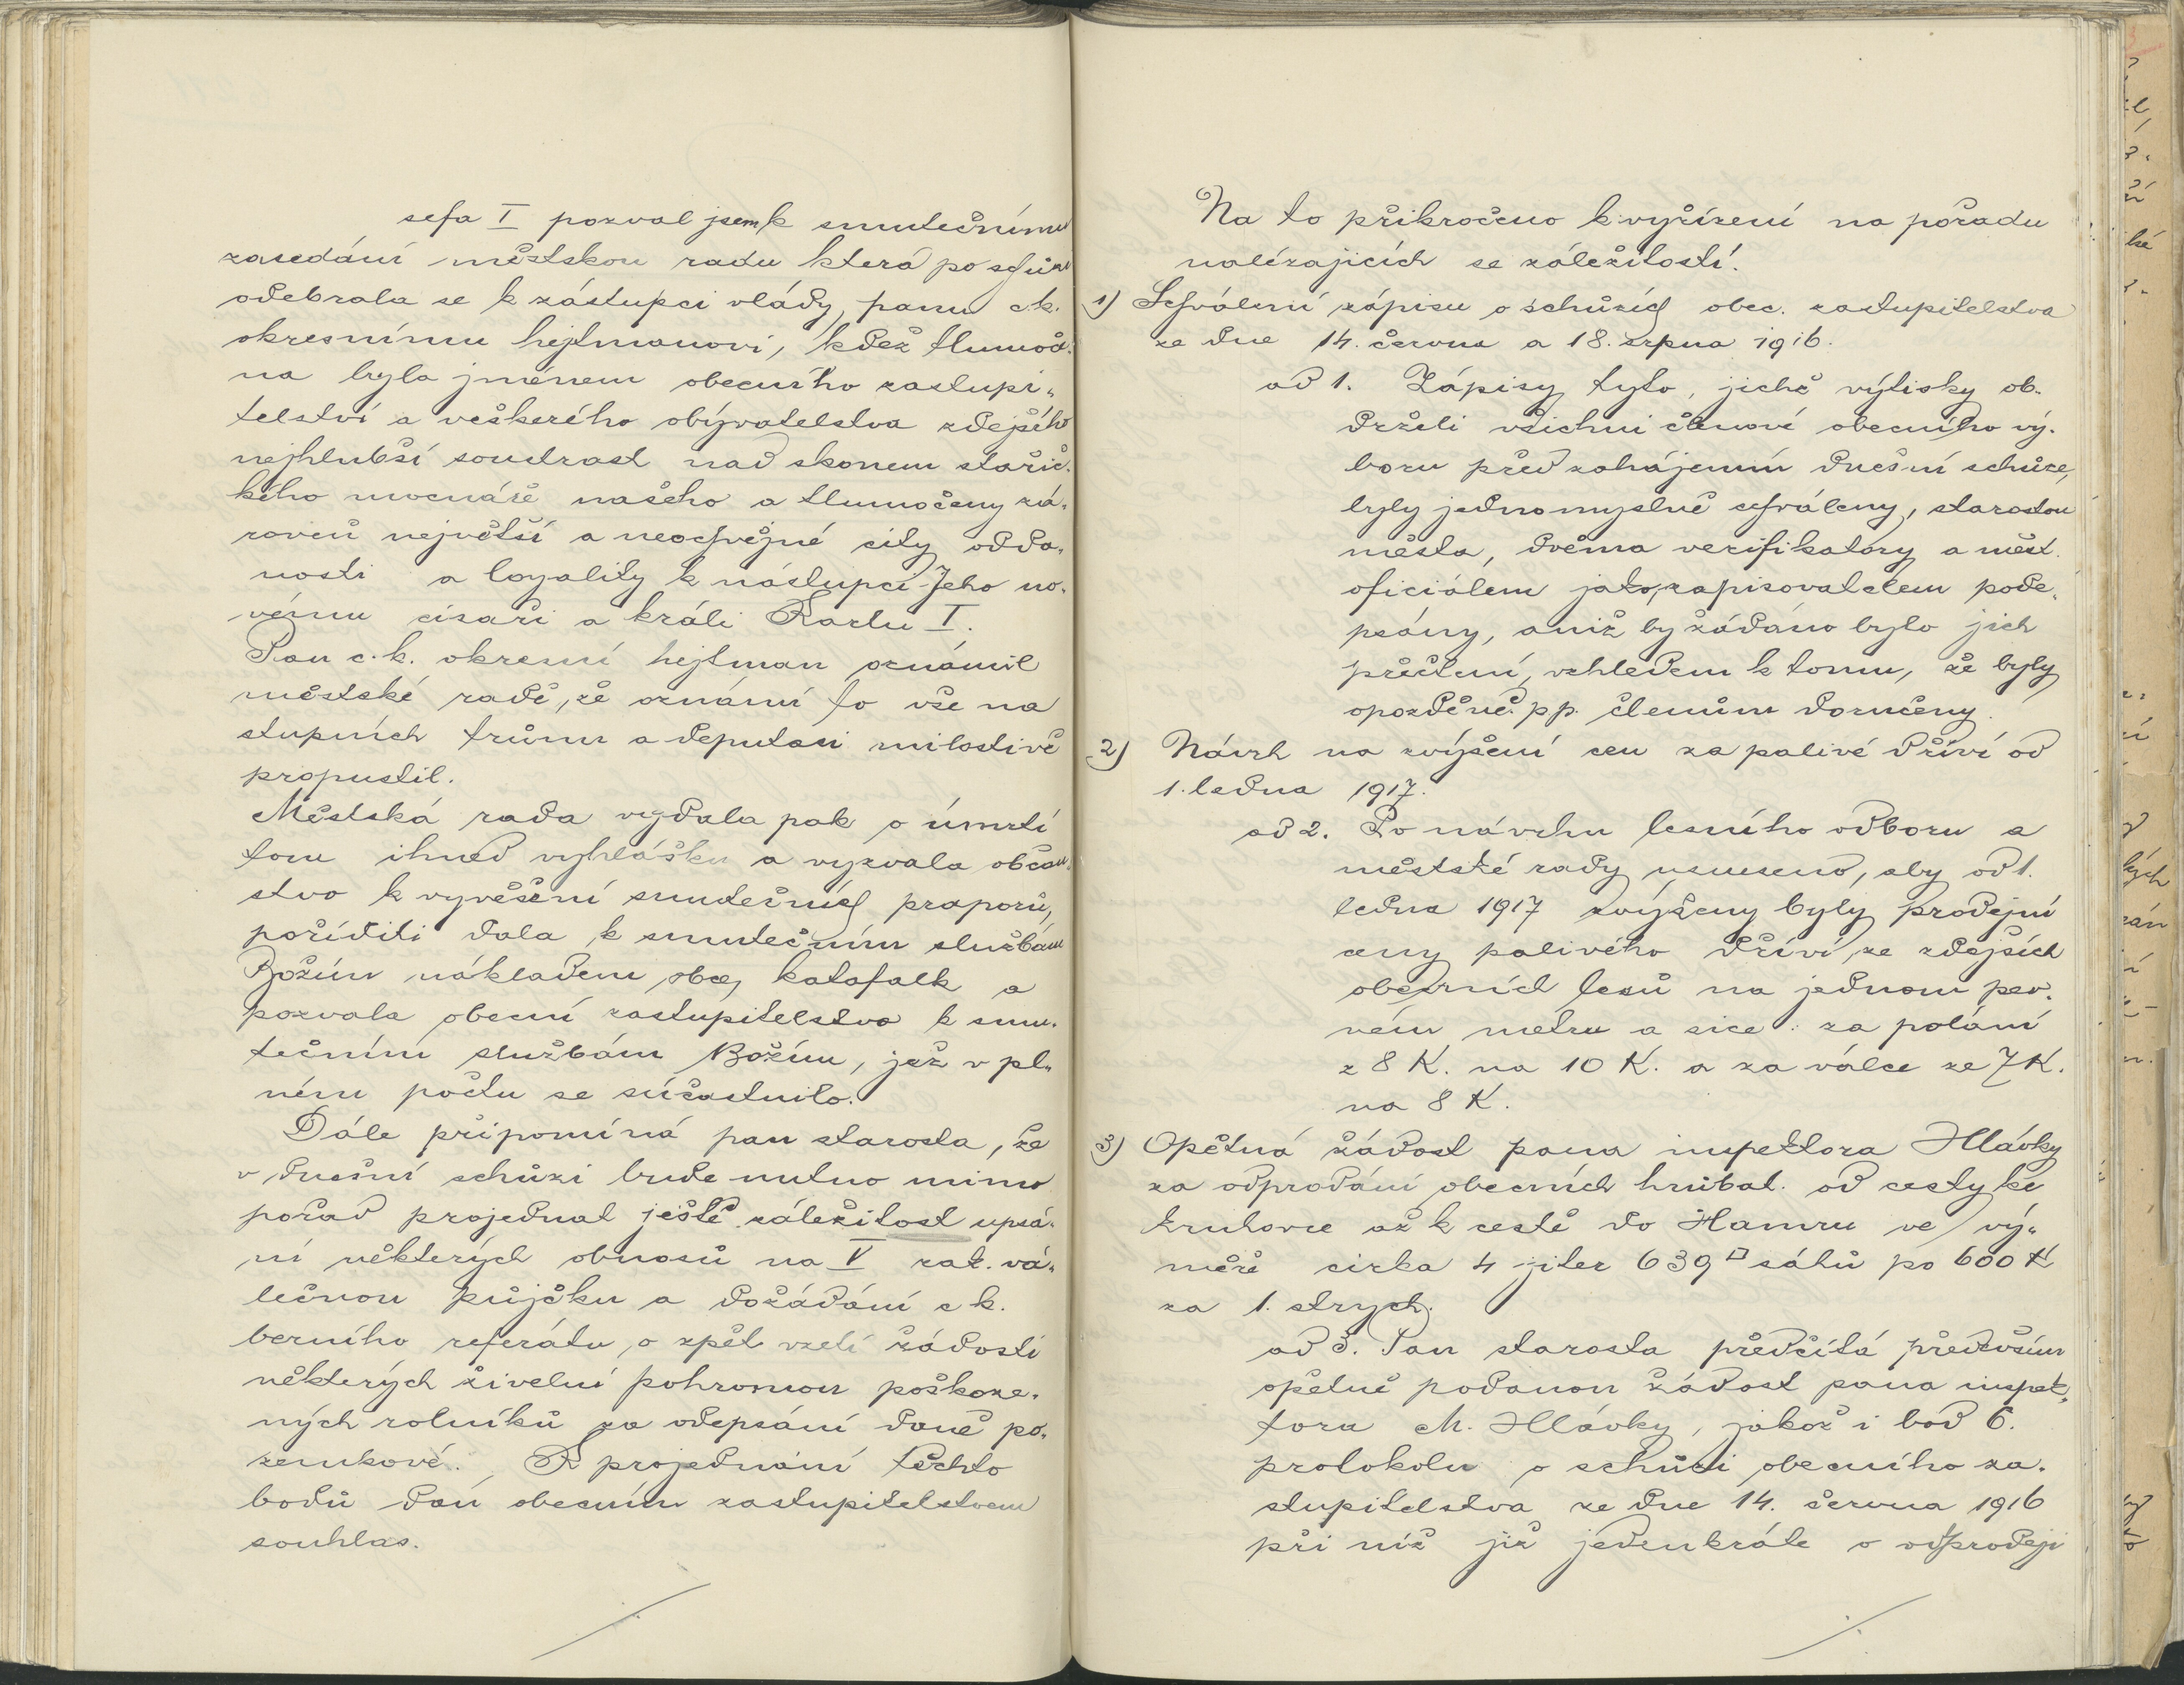 sefa I pozval jsem k smutečnímu
zasedání městskou radu která po schůzi
odebrala se k zástupci vlády, panu c.k.
okresnímu hejtmanovi, kdež tlumoče-
na byla jménem obecního zastupi-
telství a veškerého obyvatelstva zdejšího
nejhlubší soustrast nad skonem stařič-
kého mocnáře našeho a tlumočeny zá-
roveň největší a neochvějné city odda-
nosti a loyality k nástupci Jeho no-
vému císaři a králi Karlu I.
Pan c.k. okresní hejtman oznámil
městské radě, že oznámí to vše na
stupních trůnu a deputaci milostivě
propustil.
Městská rada vydala pak o úmrtí
tom ihned vyhlášku a vyzvala občan-
stvo k vyvěšení smutečních praporů,
poříditi dala k smutečním službám
Božím nákladem obce katafalk a
pozvala obecní zastupitelstvo k smu-
tečním službám Božím, jež v pl-
ném počtu se súčastnilo.
Dále připomíná pan starosta, že
v dnešní schůzi bude nutno mimo
pořad projednat ještě záležitost upsá-
ní některých obnosů na V rak. vá-
lečnou půjčku a dožádání c k.
berního referátu, o zpět vzetí žádosti
některých živelní pohromou poškoze-
ných rolníků za odepsání daně po-
zemkové. K projednání těchto
bodů dán obecním zastupitelstvem
souhlas.
Na to přikročeno k vyřízení na pořadu
nalézajících se záležitostí.
1) Schválení zápisu o schůzích obec. zastupitelstva
ze dne 14. června a 18. srpna 1916.
ad 1. Zápisy tyto, jichž výtisky ob-
drželi všichni členové obecního vý-
boru před zahájením dnešní schůze,
byly jednomyslně schváleny, starostou
města, dvěma verifikatory a měst.
oficiálem jako zapisovatelem pode-
psány, aniž by žádáno bylo jich
přečtení, vzhledem k tomu, že byly
opozděně pp. členům doručeny.
2) Návrh na zvýšení cen za palivé dříví od
1. ledna 1917.
ad 2. Po návrhu lesního odboru a
městské rady usneseno, aby od 1.
ledna 1917 zvýšeny byly prodejní
ceny palivého dříví, ze zdejších
obecních lesů na jednom pev-
ném metru a sice: za polání
z 8 K. na 10 K. a za válce ze 7 K.
na 8 K.
3) Opětná žádost pana inspektora Hlávky
za odprodání obecních hrůbat. od cesty ke
Krutovce až k cestě do Hamru ve vý-
měře cirka 4 jiter 639 □ sáhů po 600 K
za 1. strych.
ad 3. Pan starosta předčítá především
opětně podanou žádost pana inspek-
tora M. Hlávky, jakož i bod 6.
protokolu o schůzi obecního za-
stupitelstva ze dne 14. června 1916
při níž již jedenkráte o odprodeji